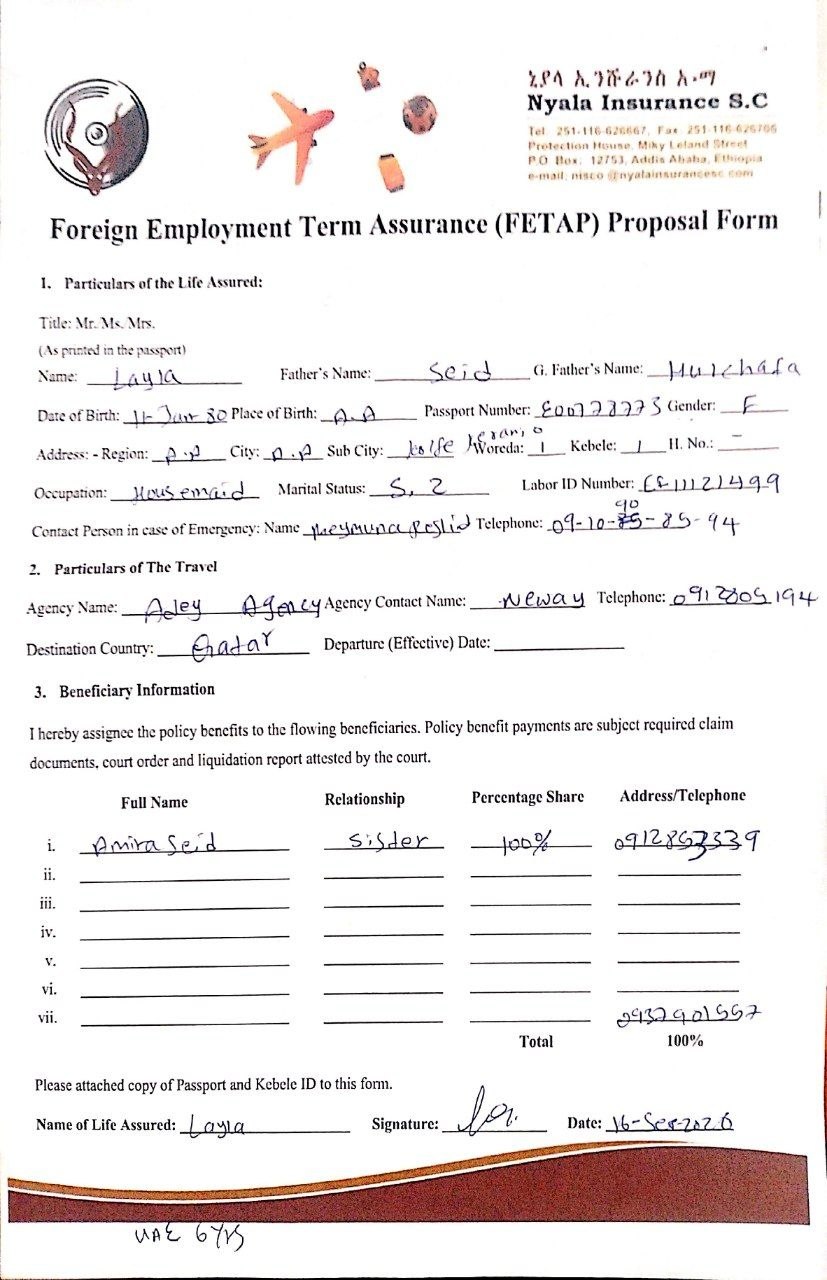 ኒያላ ኢንሹራንስ አ.ማ
Nyala Insurance S.C
Tel: 251-116-626667, Fax: 251-116-626706
Protection House, Miky Leland Street
P.O Box: 12753, Addis Ababa, Ethiopia
e-mail: nisco @nyalainsurancesc.com
Foreign Employment Term Assurance (FETAP) Proposal Form
1. Particulars of the Life Assured:
Title: Mr. Ms. Mrs.
(As printed in the passport)
Name: Layla Father's Name: Seid G. Father's Name:
Date of Birth: 11-Jun-80 Place of Birth: A.A Passport Number: Gender: F
Address: - Region: A.A City: A.A Sub City: kolfe keranio Woreda: 1 Kebele: 1 H. No.: -
Occupation: Housemaid Marital Status: S, 2 Labor ID Number:
Contact Person in case of Emergency: Name Telephone: 09-10-90-85-94
2. Particulars of The Travel
Agency Name: Adey Agency Agency Contact Name: Neway Telephone: 0912805194
Destination Country: Qatar Departure (Effective) Date:
3. Beneficiary Information
I hereby assignee the policy benefits to the flowing beneficiaries. Policy benefit payments are subject required claim
documents, court order and liquidation report attested by the court.
Full Name Relationship Percentage Share Address/Telephone
i. Amira Seid Sister 100% 0912853339
ii.
iii.
iv.
v.
vi.
vii. 0937901557
Total 100%
Please attached copy of Passport and Kebele ID to this form.
Name of Life Assured: Layla Signature: Date:
UAE 6 Yrs